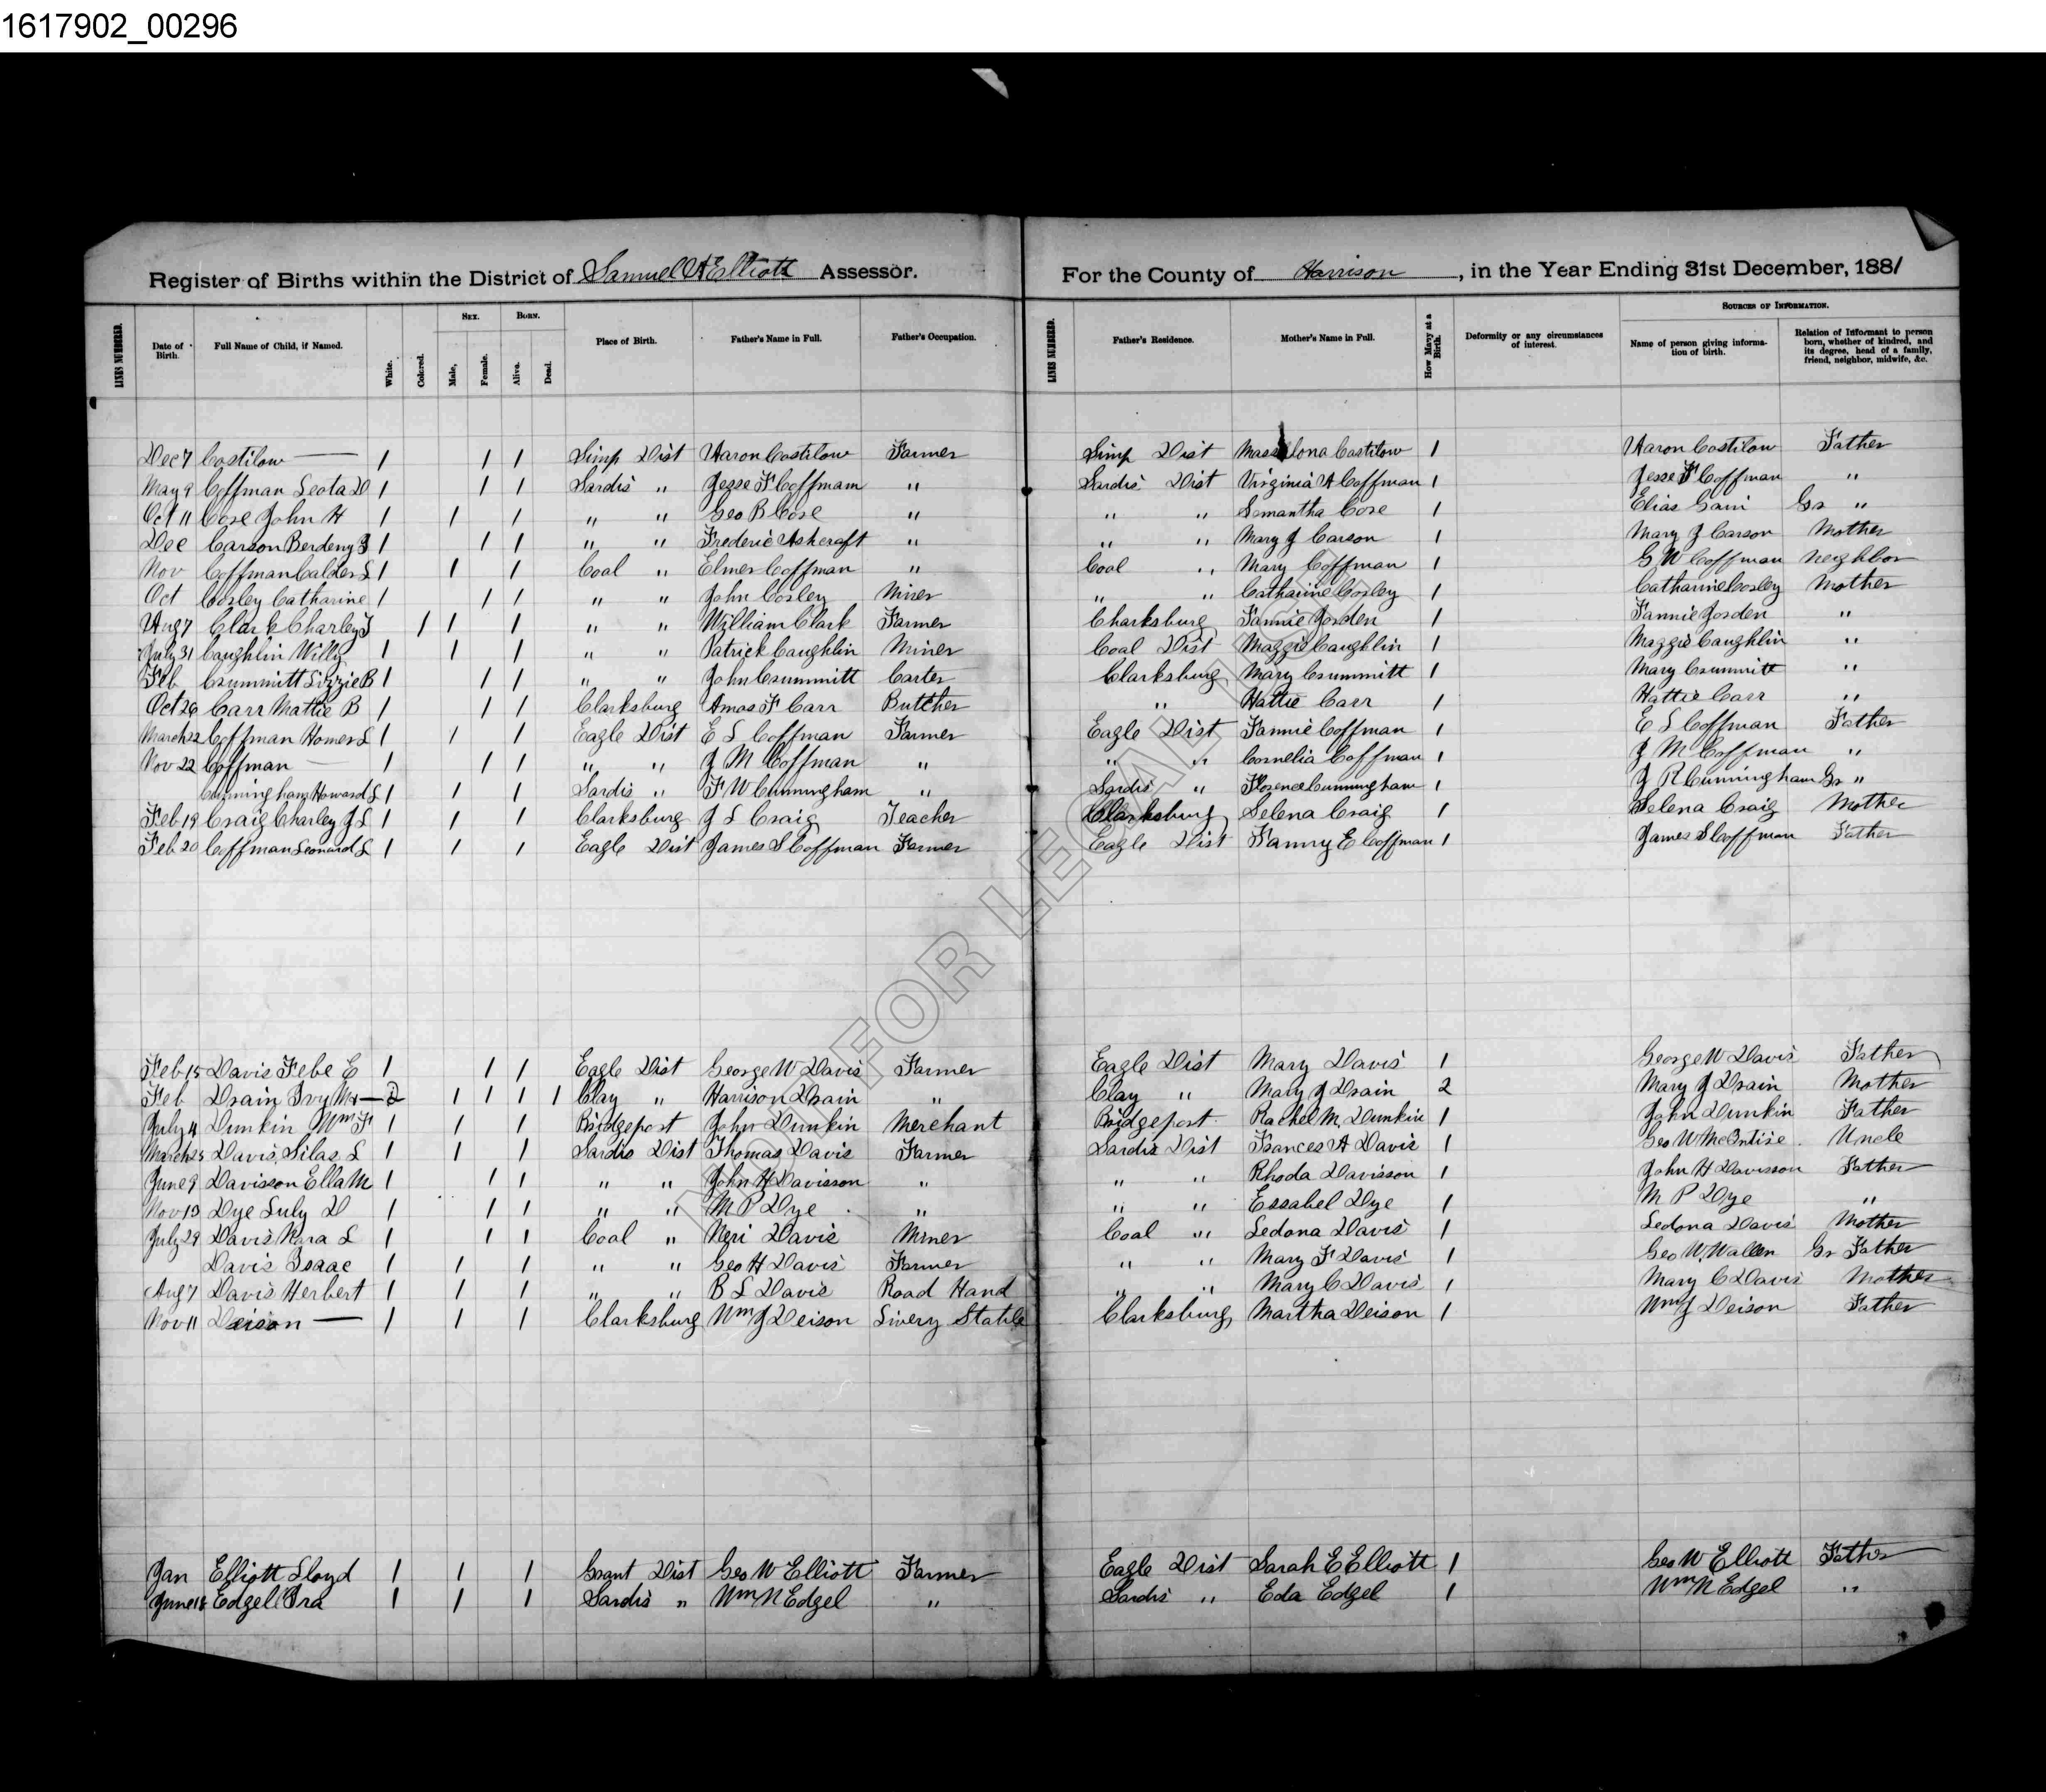 1617902_00296
Register of Births within the District of Samuel A Elliott Assessor. For the County of Harrison, in the Year Ending 31st December, 1881
LINES NUMBERED. Date of Birth. Full Name of Child, if Named. White. Colored. SEX. Male, Female. BORN. Alive. Dead. Place of Birth. Father's Name in Full. Father's Occupation. LINES NUMBERED. Father's Residence. Mother's Name in Full. How Many at a Birth. Deformity or any circumstances of interest. SOURCES OF INFORMATION. Name of person giving information of birth. Relation of Informant to person born, whether of kindred, and its degree, head of a family, friend, neighbor, midwife, &c.
Dec 7 Costilow — 1 1 1 Simp Dist Aaron Costilow Farmer Simp Dist Costilow 1 Aaron Costilow Father
May 9 Coffman Leota D 1 1 1 Sardis " Jesse F Coffmam " Sardis Dist Virginia A Coffman 1 Jesse F Coffman "
Oct 11 Cose John H 1 1 1 " " Geo B Cose " " " Samantha Cose 1 Elias Gain Gr "
Dec Carson 1 1 1 " " Frederic Ashcraft " " " Mary J Carson 1 Mary J Carson Mother
Nov Coffman 1 1 1 Coal " Elmer Coffman " Coal " Mary Coffman 1 G W Coffman neighbor
Oct Cosley Catharine 1 1 1 " " John Cosley Miner " " Catharine Cosley 1 Catharine Cosley Mother
Aug 7 Clark Charley J 1 1 1 " " William Clark Farmer Charksburg Fannie Jorden 1 Fannie Jorden "
July 31 Caughlin Willy 1 1 1 " " Patrick Caughlin Miner Coal Dist Maggie Caughlin 1 Maggie Caughlin "
Feb Crummitt Lizzie B 1 1 1 " " John Crummitt Carter Clarksburg Mary Crummitt 1 Mary Crummitt "
Oct 26 Carr Mattie B 1 1 1 Clarksburg Amos F Carr Butcher " Hattie Carr 1 Hattie Carr "
March 22 Coffman Homer L 1 1 1 Eagle Dist E L Coffman Farmer Eagle Dist Fannie Coffman 1 E L Coffman Father
Nov 22 Coffman — 1 1 1 " " J M Coffman " " " Cornelia Coffman 1 J M Coffman "
Cunningham Howard L 1 1 1 Sardis " F W Cunningham " Sardis " Florence Cunningham 1 J R Cunningham Gr "
Feb 19 Craig Charley J L 1 1 1 Clarksburg J L Craig Teacher Clarksburg Selena Craig 1 Selena Craig Mother
Feb 20 Coffman Leonard L 1 1 1 Eagle Dist James S Coffman Farmer Eagle Dist Fanny E Coffman 1 James S Coffman Father
Feb 15 Davis Febe E 1 1 1 Eagle Dist George W Davis Farmer Eagle Dist Mary Davis 1 George W Davis Father
Feb Drain Ivy — 2 1 1 1 1 Clay " Harrison Drain " Clay " Mary J Drain 2 Mary J Drain Mother
July 4 Dunkin Wm F 1 1 1 Bridgeport John Dunkin Merchant Bridgeport Rachel M. Dunkin 1 John Dunkin Father
March 25 Davis Silas L 1 1 1 Sardis Dist Thomas Davis Farmer Sardis Dist Frances A Davis 1 Geo W McIntire Uncle
June 9 Davisson Ella M 1 1 1 " " John H Davisson " " " Rhoda Davisson 1 John H Davisson Father
Nov 13 Dye Luly D 1 1 1 " " M P Dye " " " Essabel Dye 1 M P Dye "
July 29 Davis L 1 1 1 Coal " Neri Davis Miner Coal " Ledona Davis 1 Ledona Davis Mother
Davis Isaac 1 1 1 " " Geo H Davis Farmer " " Mary F Davis 1 Geo W. Wallen Gr Father
Aug 7 Davis Herbert 1 1 1 " " B L Davis Road Hand " " Mary C Davis 1 Mary C Davis Mother
Nov 11 Deison — 1 1 1 Clarksburg Wm J Deison Livery Stable Clarksburg Martha Deison 1 Wm J Deison Father
Jan Elliott Lloyd 1 1 1 Grant Dist Geo W Elliott Farmer Eagle Dist Sarah E Elliott 1 Geo W Elliott Father
June 18 Edgel Ira 1 1 1 Sardis " Wm N Edgel " Sardis " Eda Edgel 1 Wm N Edgel "